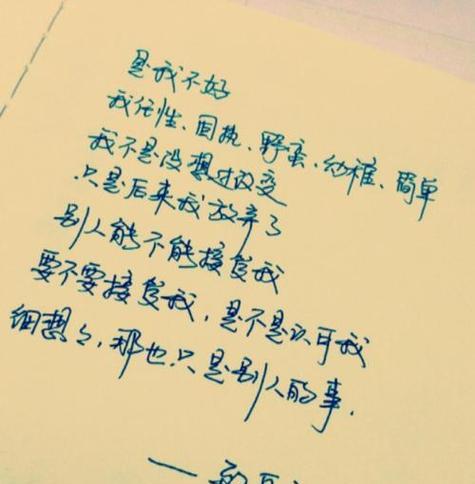 是我不好
我任性、固执、野蛮、幼稚、简单
我不是没想过改变
只是后来我放弃了
别人能不能接受我
要不要接受我，是不是认可我
细想々，那也只是别人的事.